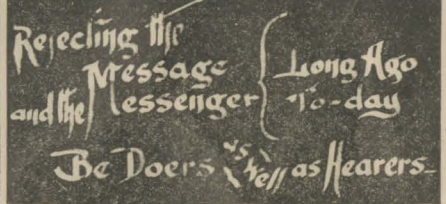 Rejecting the
Message
and the Messenger { Long Ago
To-day
Be Doers as Well as Hearers_